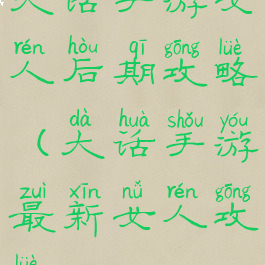 大话手游女
rén hòu qī gōng lüè
人后期攻略
dà huà shǒu yóu
（大话手游
zuì xīn nǚ rén gōng
最新女人攻
lüè